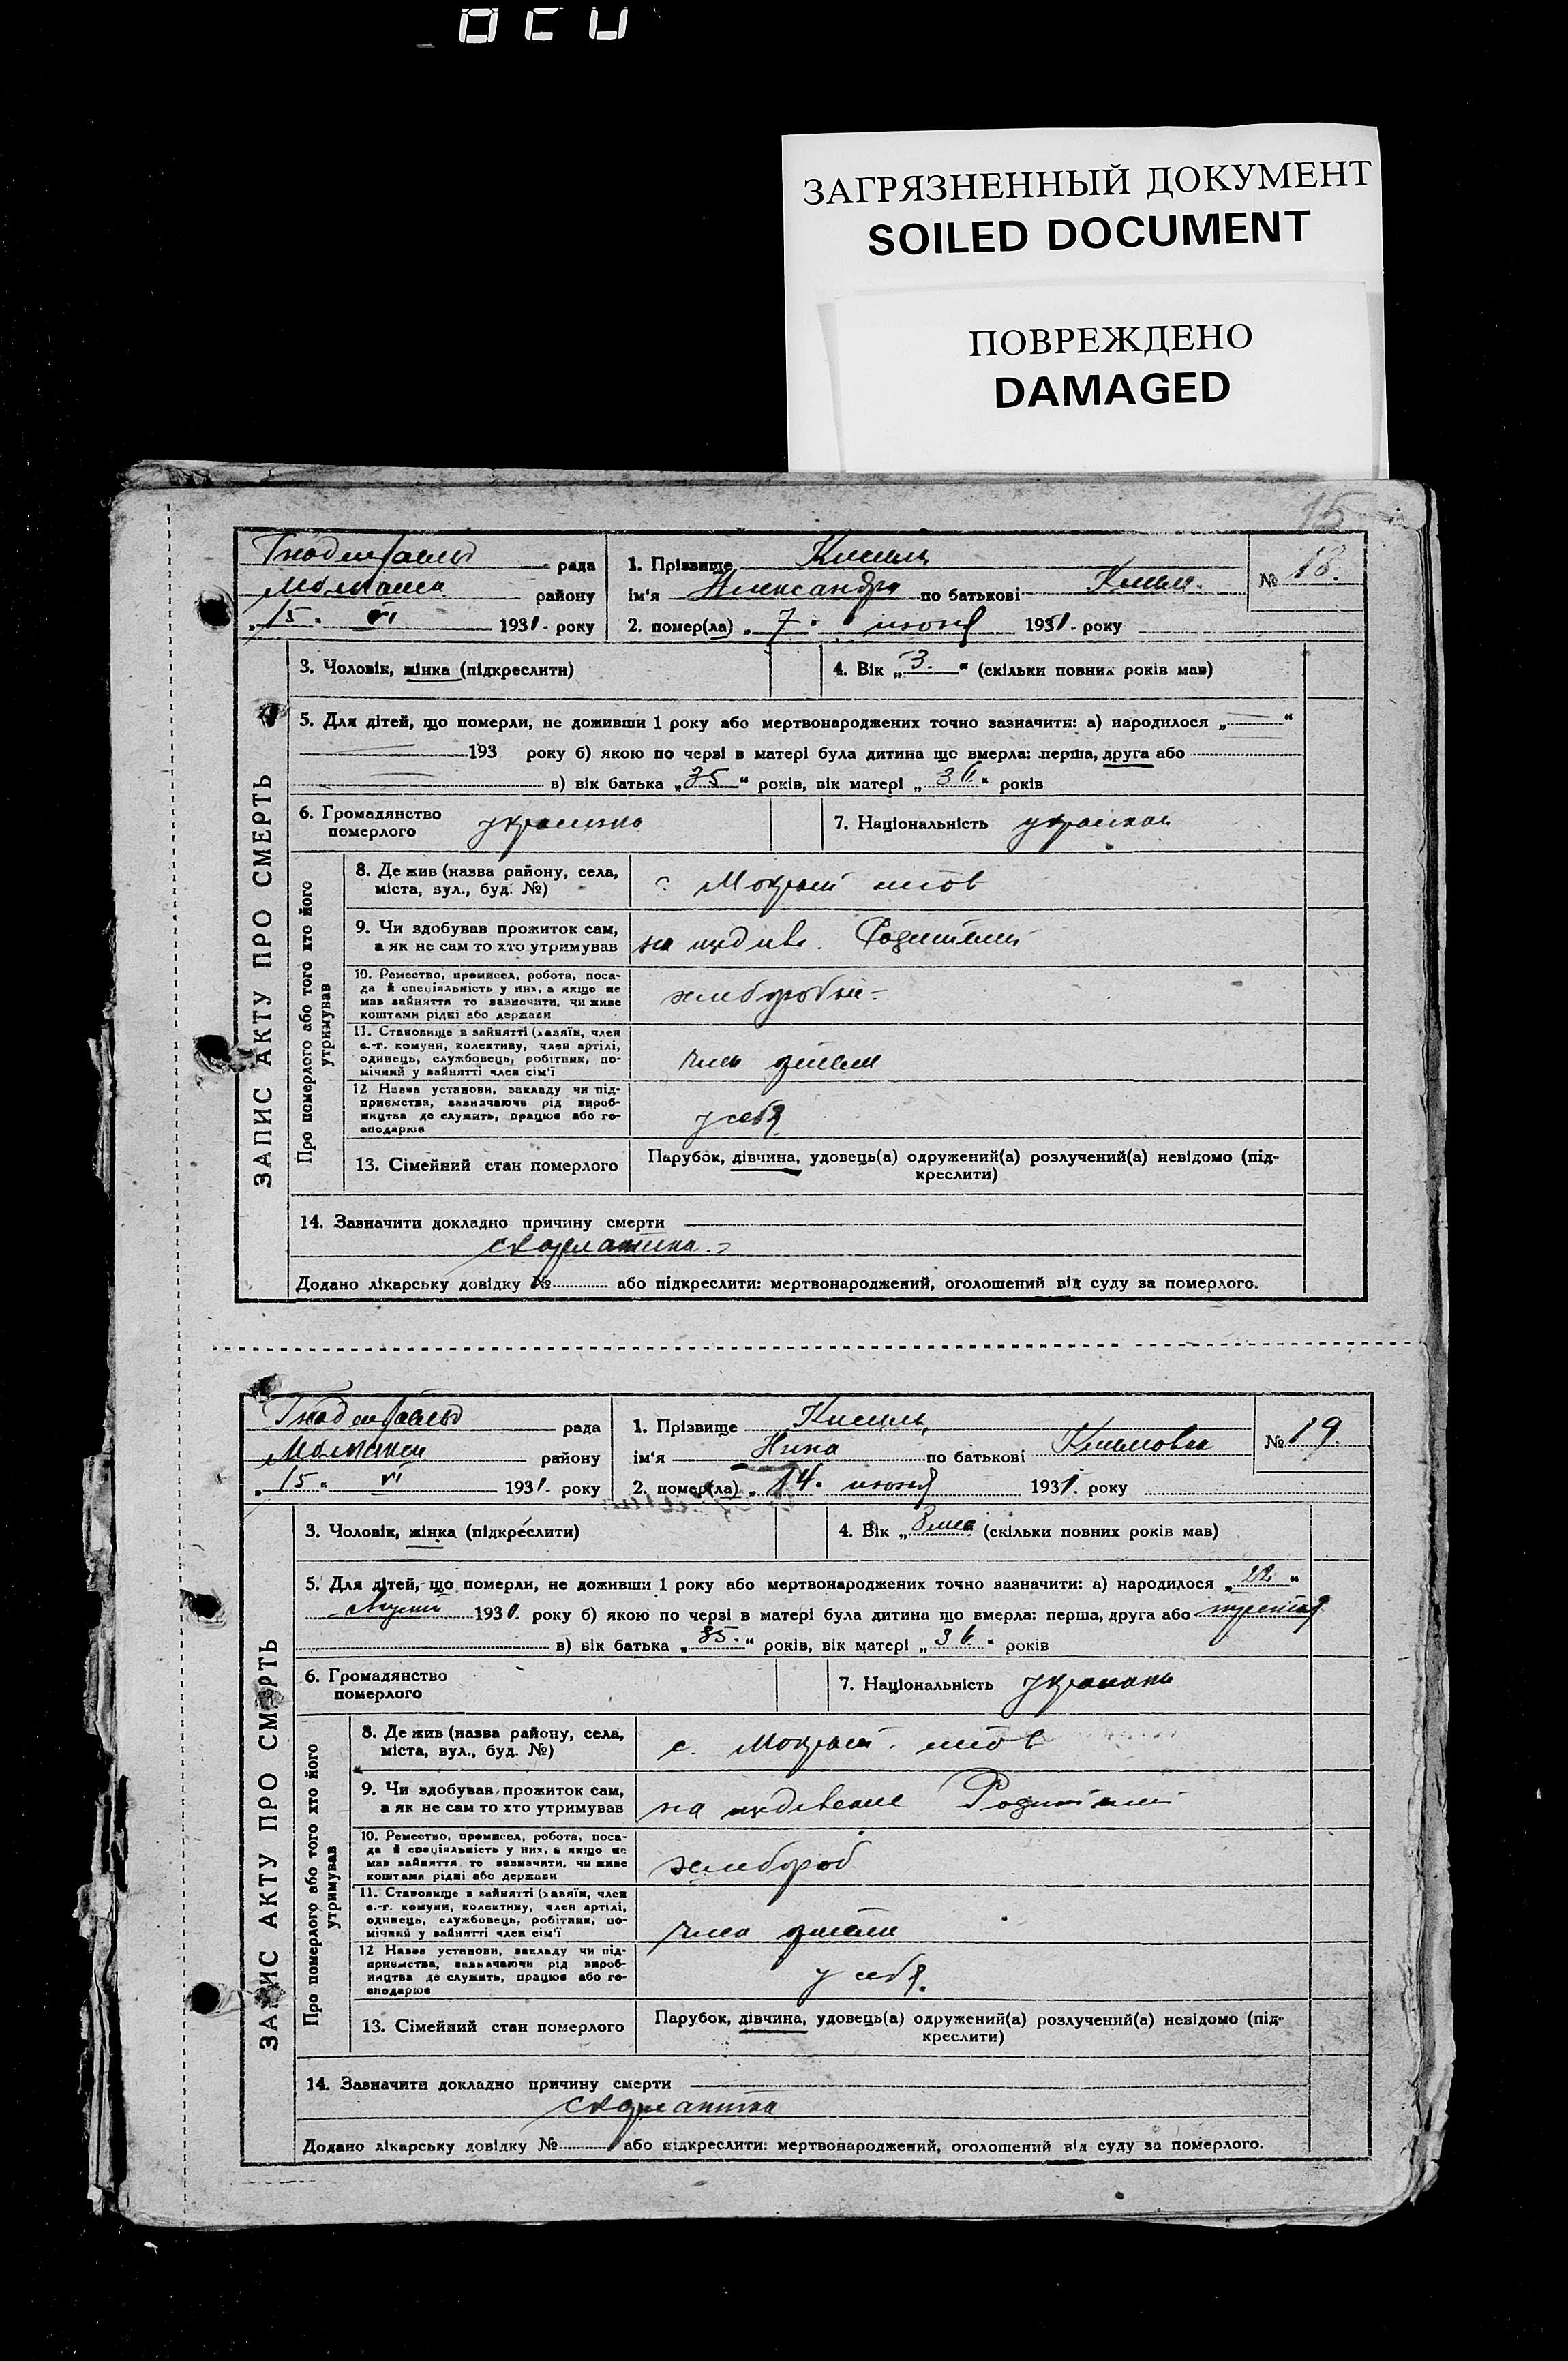 ЗАГРЯЗНЕННЫЙ ДОКУМЕНТ
SOILED DOCUMENT
ПОВРЕЖДЕНО
DAMAGED
15
ЗАПИС АКТУ ПРО СМЕРТЬ
рада
району
"15" VI 1931. року
1. Прізвище Кисиль
ім'я Александра по батькові Клим.
2. помер(ла) "7" июня 1931. року
№ 18.
3. Чоловік, жінка (підкреслити)
4. Вік „3." (скільки повних років мав)
5. Для дітей, що померли, не доживши 1 року або мертвонароджених точно зазначити: а) народилося „ — "
193 року б) якою по черзі в матері була дитина що вмерла: перша, друга або
в) вік батька „35" років, вік матері „ " років
6. Громадянство
померлого
7. Національність
Про померлого або того хто його
утримував
8. Де жив (назва району, села,
міста, вул., буд. №)
9. Чи здобував прожиток сам,
а як не сам то хто утримував
Родители
10. Ремество, промисел, робота, поса-
да й спеціяльність у них, а якщо не
мав зайняття то зазначити, чи живе
коштами рідні або держави
11. Становище в зайнятті (хазяїн, член
с.-г. комуни, колективу, член артілі,
одинець, службовець, робітник, по-
мічний у зайнятті член сім'ї
член артели
12 Назва установи, закладу чи під-
приємства, зазначаючи рід вироб-
ництва де служить, працює або го-
сподарює
у себя
13. Сімейний стан померлого
Парубок, дівчина, удовець(а) одружений(а) розлучений(а) невідомо (під-
креслити)
14. Зазначити докладно причину смерти
скарлатина
Додано лікарську довідку № або підкреслити: мертвонароджений, оголошений від суду за померлого.
ЗАПИС АКТУ ПРО СМЕРТЬ
рада
району
"15" VI 1931. року
1. Прізвище Кисиль
ім'я Нина по батькові Климовна
2. помер(ла) "14" июня 1931. року
№ 19.
3. Чоловік, жінка (підкреслити)
4. Вік „ (скільки повних років мав)
5. Для дітей, що померли, не доживши 1 року або мертвонароджених точно зазначити: а) народилося „22"
193 року б) якою по черзі в матері була дитина що вмерла: перша, друга або третья
в) вік батька „35." років, вік матері „ " років
6. Громадянство
померлого
7. Національність
Про померлого або того хто його
утримував
8. Де жив (назва району, села,
міста, вул., буд. №)
с.
9. Чи здобував прожиток сам,
а як не сам то хто утримував
на иждивение Родители
10. Ремество, промисел, робота, поса-
да й спеціяльність у них, а якщо не
мав зайняття то зазначити, чи живе
коштами рідні або держави
хлебороб
11. Становище в зайнятті (хазяїн, член
с.-г. комуни, колективу, член артілі,
одинець, службовець, робітник, по-
мічний у зайнятті член сім'ї
член артели
12 Назва установи, закладу чи під-
приємства, зазначаючи рід вироб-
ництва де служить, працює або го-
сподарює
у себя.
13. Сімейний стан померлого
Парубок, дівчина, удовець(а) одружений(а) розлучений(а) невідомо (під-
креслити)
14. Зазначити докладно причину смерти
скарлатина
Додано лікарську довідку № або підкреслити: мертвонароджений, оголошений від суду за померлого.